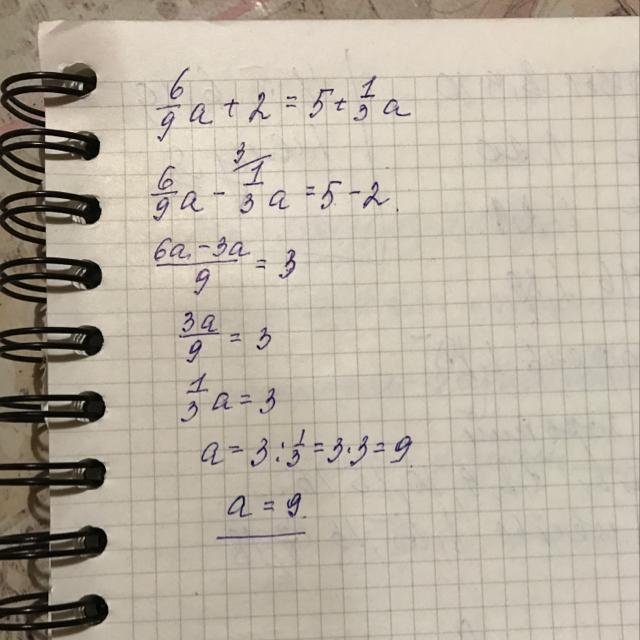 6/9 a + 2 = 5 + 1/3 a
6/9 a - 1/3 a = 5 - 2
(6a - 3a)/9 = 3
3a/9 = 3
1/3 a = 3
a = 3 : 1/3 = 3·3 = 9
a = 9